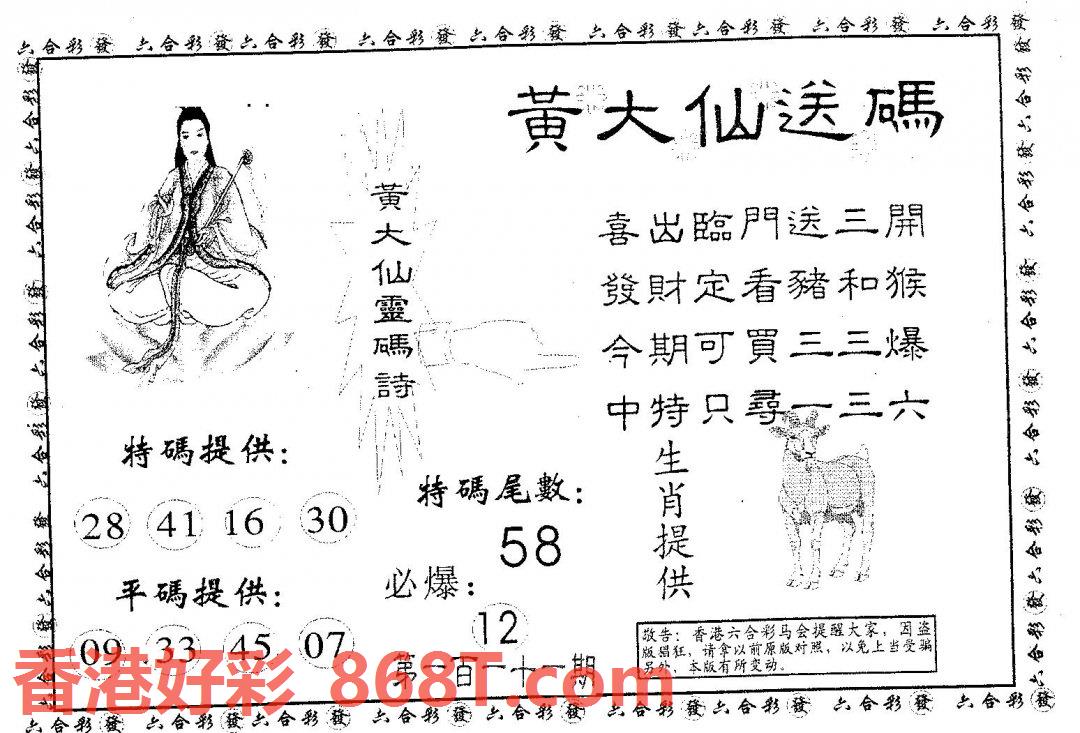 六合彩發 六合彩發 六合彩發 六合彩發 六合彩發 六合彩發 六合彩發 六合彩發 六合彩發
黃大仙送碼
黃大仙靈碼詩
喜出臨門送三開
發財定看豬和猴
今期可買三三爆
中特只尋一三六
特碼提供：
28 41 16 30
平碼提供：
09 33 45 07
特碼尾數：
58
必爆：
12
第一百一十一期
生肖提供
敬告：香港六合彩马会提醒大家，因盗
版猖狂，请拿以前原版对照，以免上当受骗
另外，本版有所变动。
香港好彩 868T.com
六合彩發 六合彩發 六合彩發 六合彩發 六合彩發 六合彩發 六合彩發 六合彩發 六合彩發